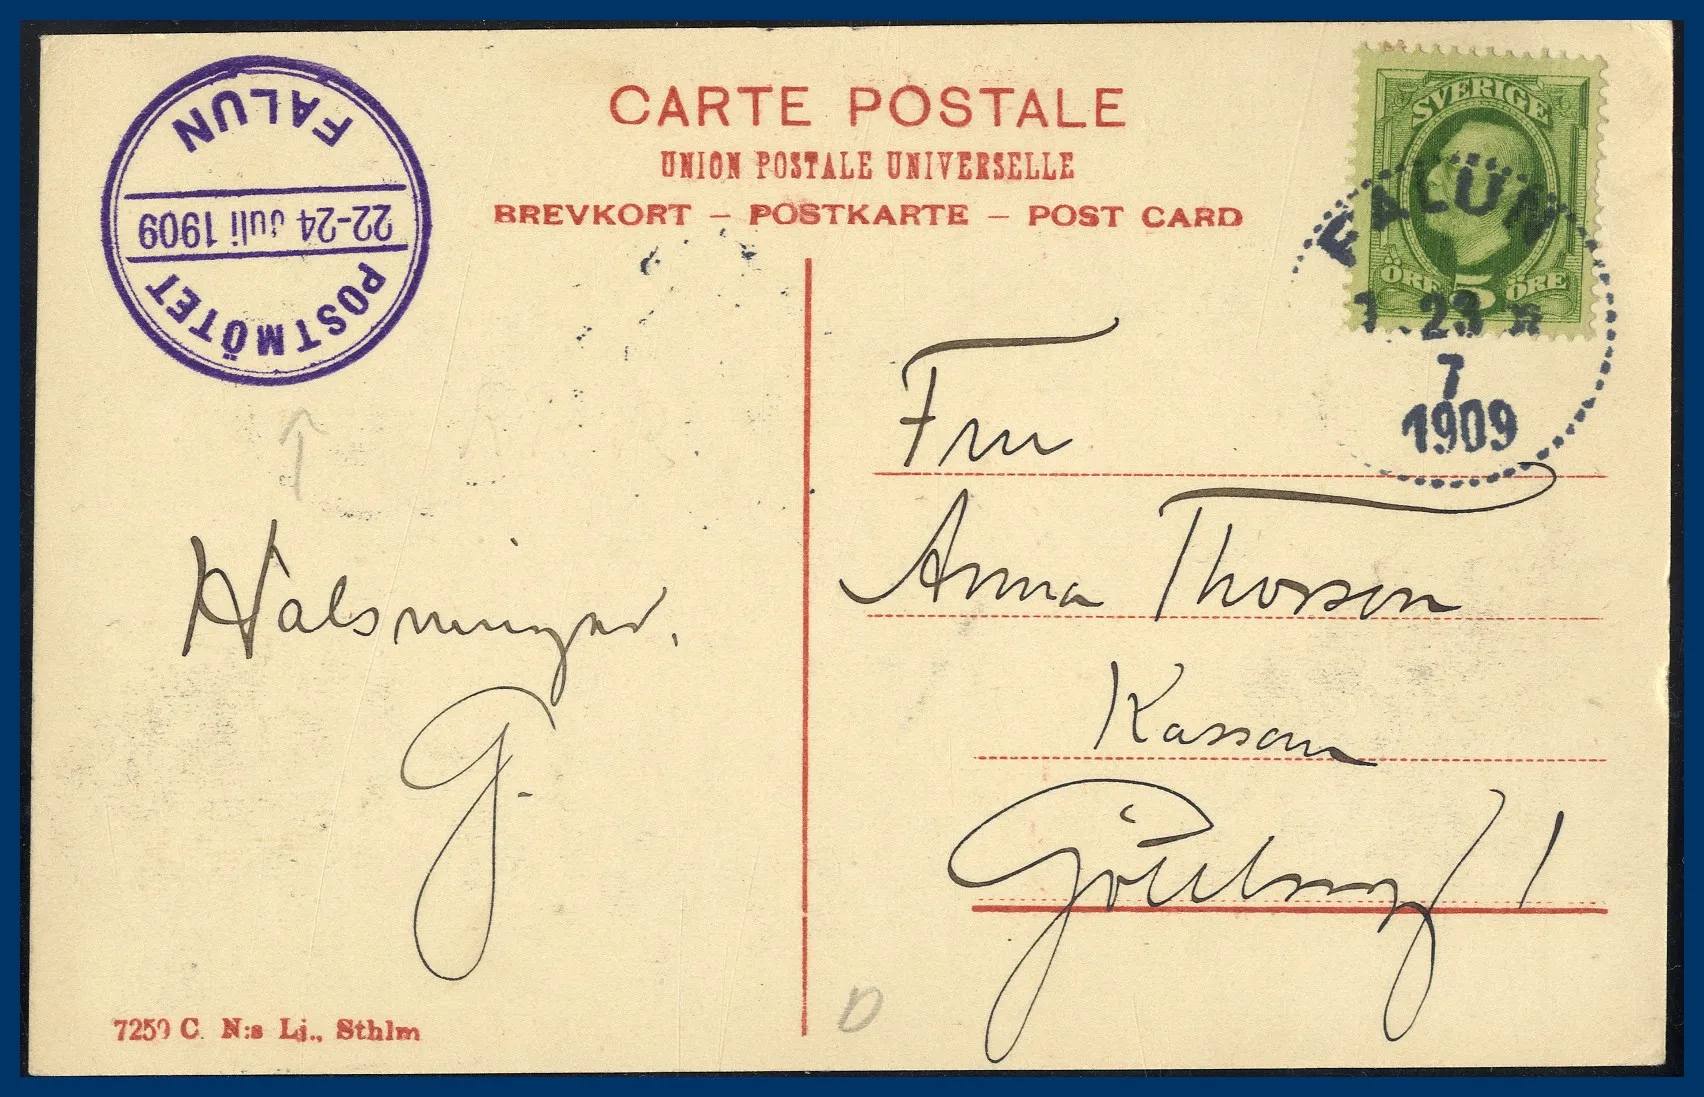 CARTE POSTALE
UNION POSTALE UNIVERSELLE
BREVKORT – POSTKARTE – POST CARD
POSTMÖTET
22-24 Juli 1909
FALUN
SVERIGE
ÖRE 5 ÖRE
FALUN
23
7
1909
Fru
Anna Thorson
Göteborg 1
Hälsningar.
G.
D
7250 C. N:s Lj., Sthlm